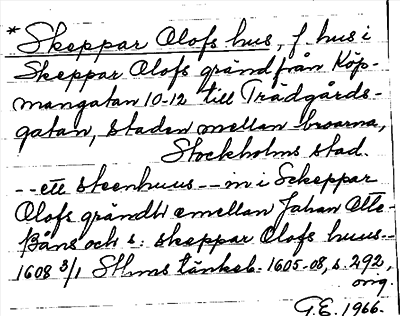 * Skeppar Olofs hus, f. hus i
Skeppar Olofs gränd från Köp-
mangatan 10-12 till Trädgårds-
gatan, staden mellan broarna,
Stockholms stad.
-- ett steenhuus -- in i Sckeppar
Olofs grändh emellan Jahan Otte-
ßåns och s: skeppar Olofs huus--
1608 3/1 Sthms tänkeb. 1605-08, s. 292,
orig.
G.E. 1966.